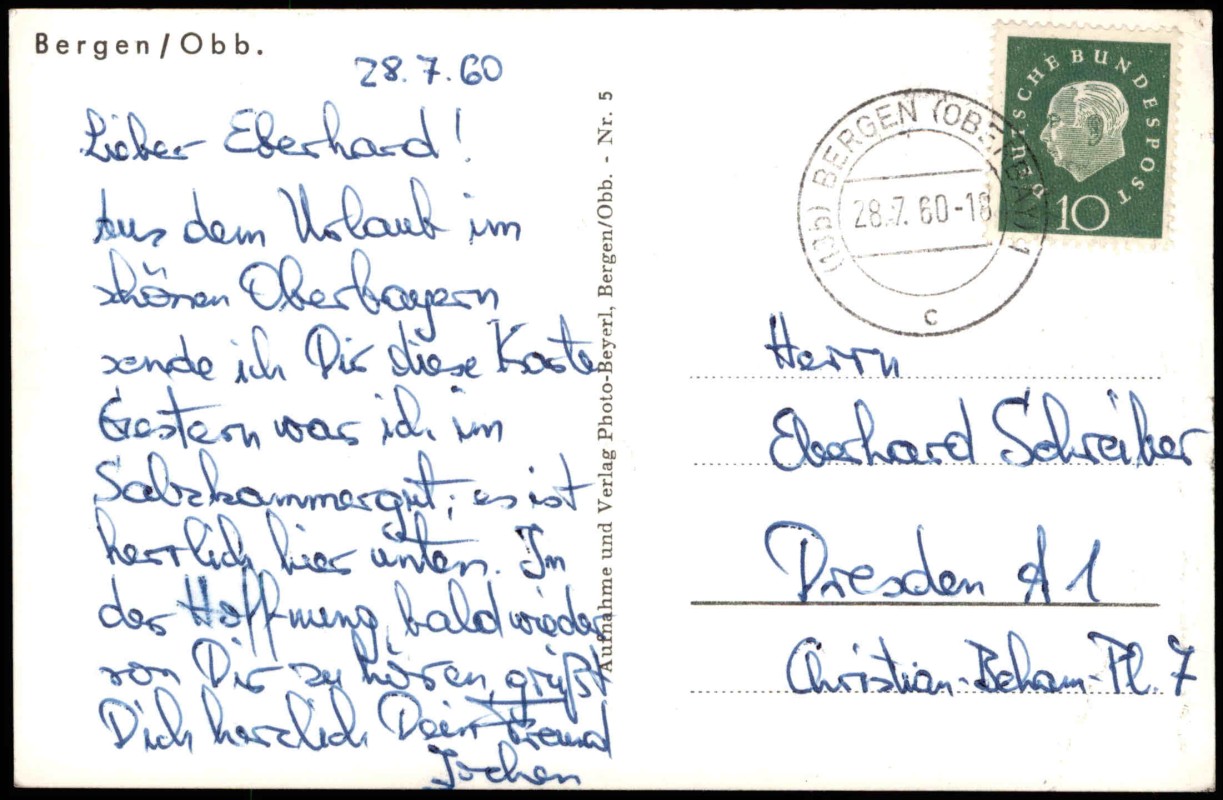 Bergen/Obb.
28.7.60
Lieber Eberhard!
Aus dem Urlaub im
schönen Oberbayern
sende ich Dir diese Karte
Gestern war ich im
Salzkammergut; es ist
herrlich hier unten. In
der Hoffnung, bald wieder
von Dir zu hören, grüßt
Dich herzlich Dein Freund
Jochen
Aufnahme und Verlag Photo-Beyerl, Bergen/Obb. - Nr. 5
DEUTSCHE BUNDESPOST
10
(13b) BERGEN (OBERBAY) 1
28.7.60-18
c
Herrn
Eberhard Schreiber
Dresden A 1
Christian-Beham-Pl. 7